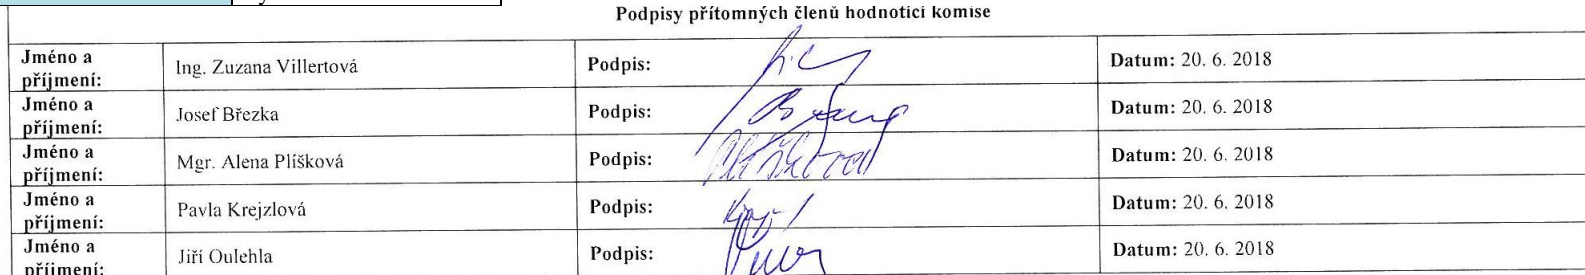 Podpisy přítomných členů hodnotící komise
Jméno a
příjmení:
Ing. Zuzana Villertová
Podpis:
Datum: 20. 6. 2018
Jméno a
příjmení:
Josef Březka
Podpis:
Datum: 20. 6. 2018
Jméno a
příjmení:
Mgr. Alena Plíšková
Podpis:
Datum: 20. 6. 2018
Jméno a
příjmení:
Pavla Krejzlová
Podpis:
Datum: 20. 6. 2018
Jméno a
příjmení:
Jiří Oulehla
Podpis:
Datum: 20. 6. 2018